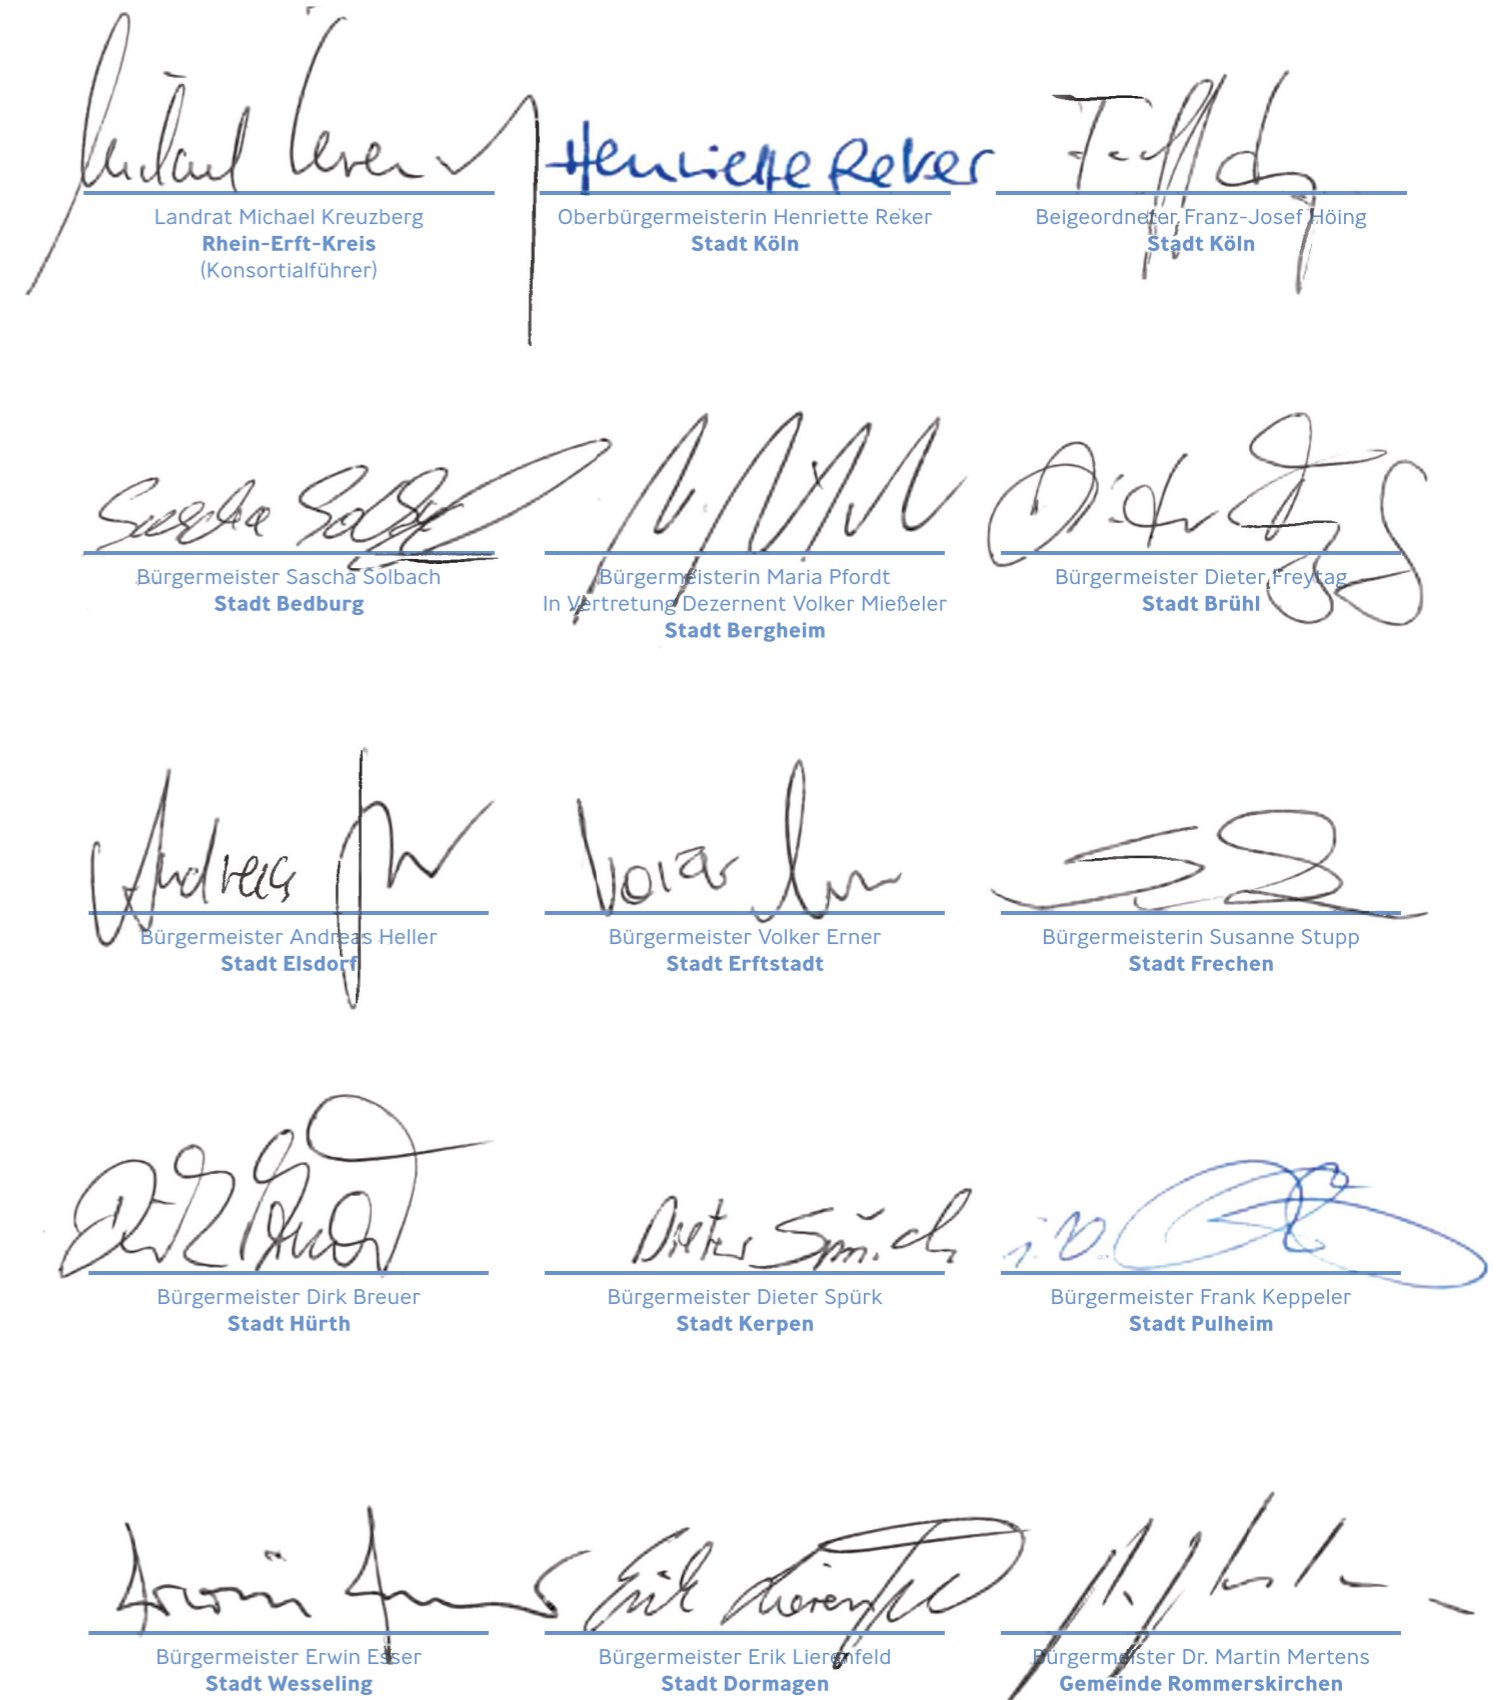 Henriette Reker
Landrat Michael Kreuzberg
Rhein-Erft-Kreis
(Konsortialführer)
Oberbürgermeisterin Henriette Reker
Stadt Köln
Beigeordneter Franz-Josef Höing
Stadt Köln
Sascha
Bürgermeister Sascha Solbach
Stadt Bedburg
Bürgermeisterin Maria Pfordt
In Vertretung Dezernent Volker Mießeler
Stadt Bergheim
Dieter
Bürgermeister Dieter Freytag
Stadt Brühl
Andreas
Bürgermeister Andreas Heller
Stadt Elsdorf
Volker
Bürgermeister Volker Erner
Stadt Erftstadt
Bürgermeisterin Susanne Stupp
Stadt Frechen
Bürgermeister Dirk Breuer
Stadt Hürth
Dieter Spürk
Bürgermeister Dieter Spürk
Stadt Kerpen
i.V.
Bürgermeister Frank Keppeler
Stadt Pulheim
Erwin
Bürgermeister Erwin Esser
Stadt Wesseling
Erik Lierenfeld
Bürgermeister Erik Lierenfeld
Stadt Dormagen
Bürgermeister Dr. Martin Mertens
Gemeinde Rommerskirchen